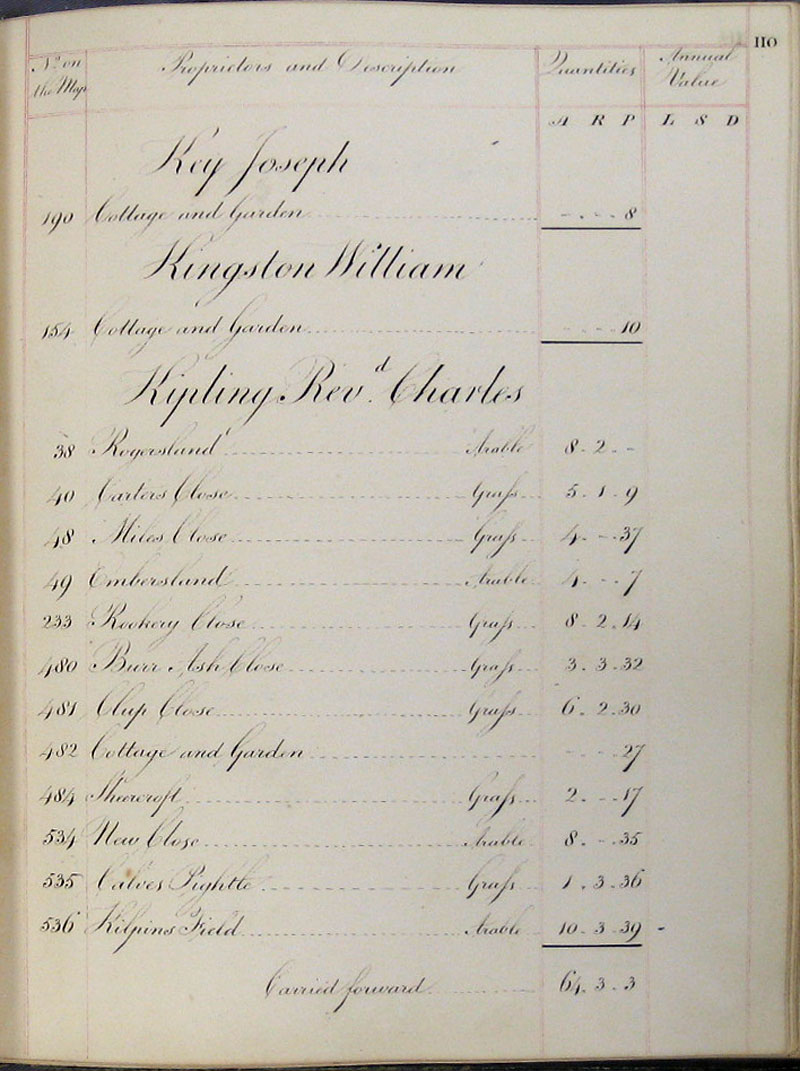 110
No. on the Map Proprietors and Description Quantities Annual Value
A R P L S D
Key Joseph
190 Cottage and Garden - - - 8
Kingston William
154 Cottage and Garden - - - 10
Kipling Revd. Charles
38 Rogersland Arable 8 - 2 - -
40 Carters Close Grass 5 - 1 - 9
48 Miles Close Grass 4 - - - 37
49 Embersland Arable 4 - - - 7
233 Rookery Close Grass 8 - 2 - 14
480 Burr Ash Close Grass 3 - 3 - 32
481 Close Grass 6 - 2 - 30
482 Cottage and Garden - - - 27
484 Grass 2 - - - 17
534 New Close Arable 8 - - - 35
535 Calves Pightle Grass 1 - 3 - 36
536 Kilpins Field Arable 10 - 3 - 39 -
Carried forward 64 - 3 - 3